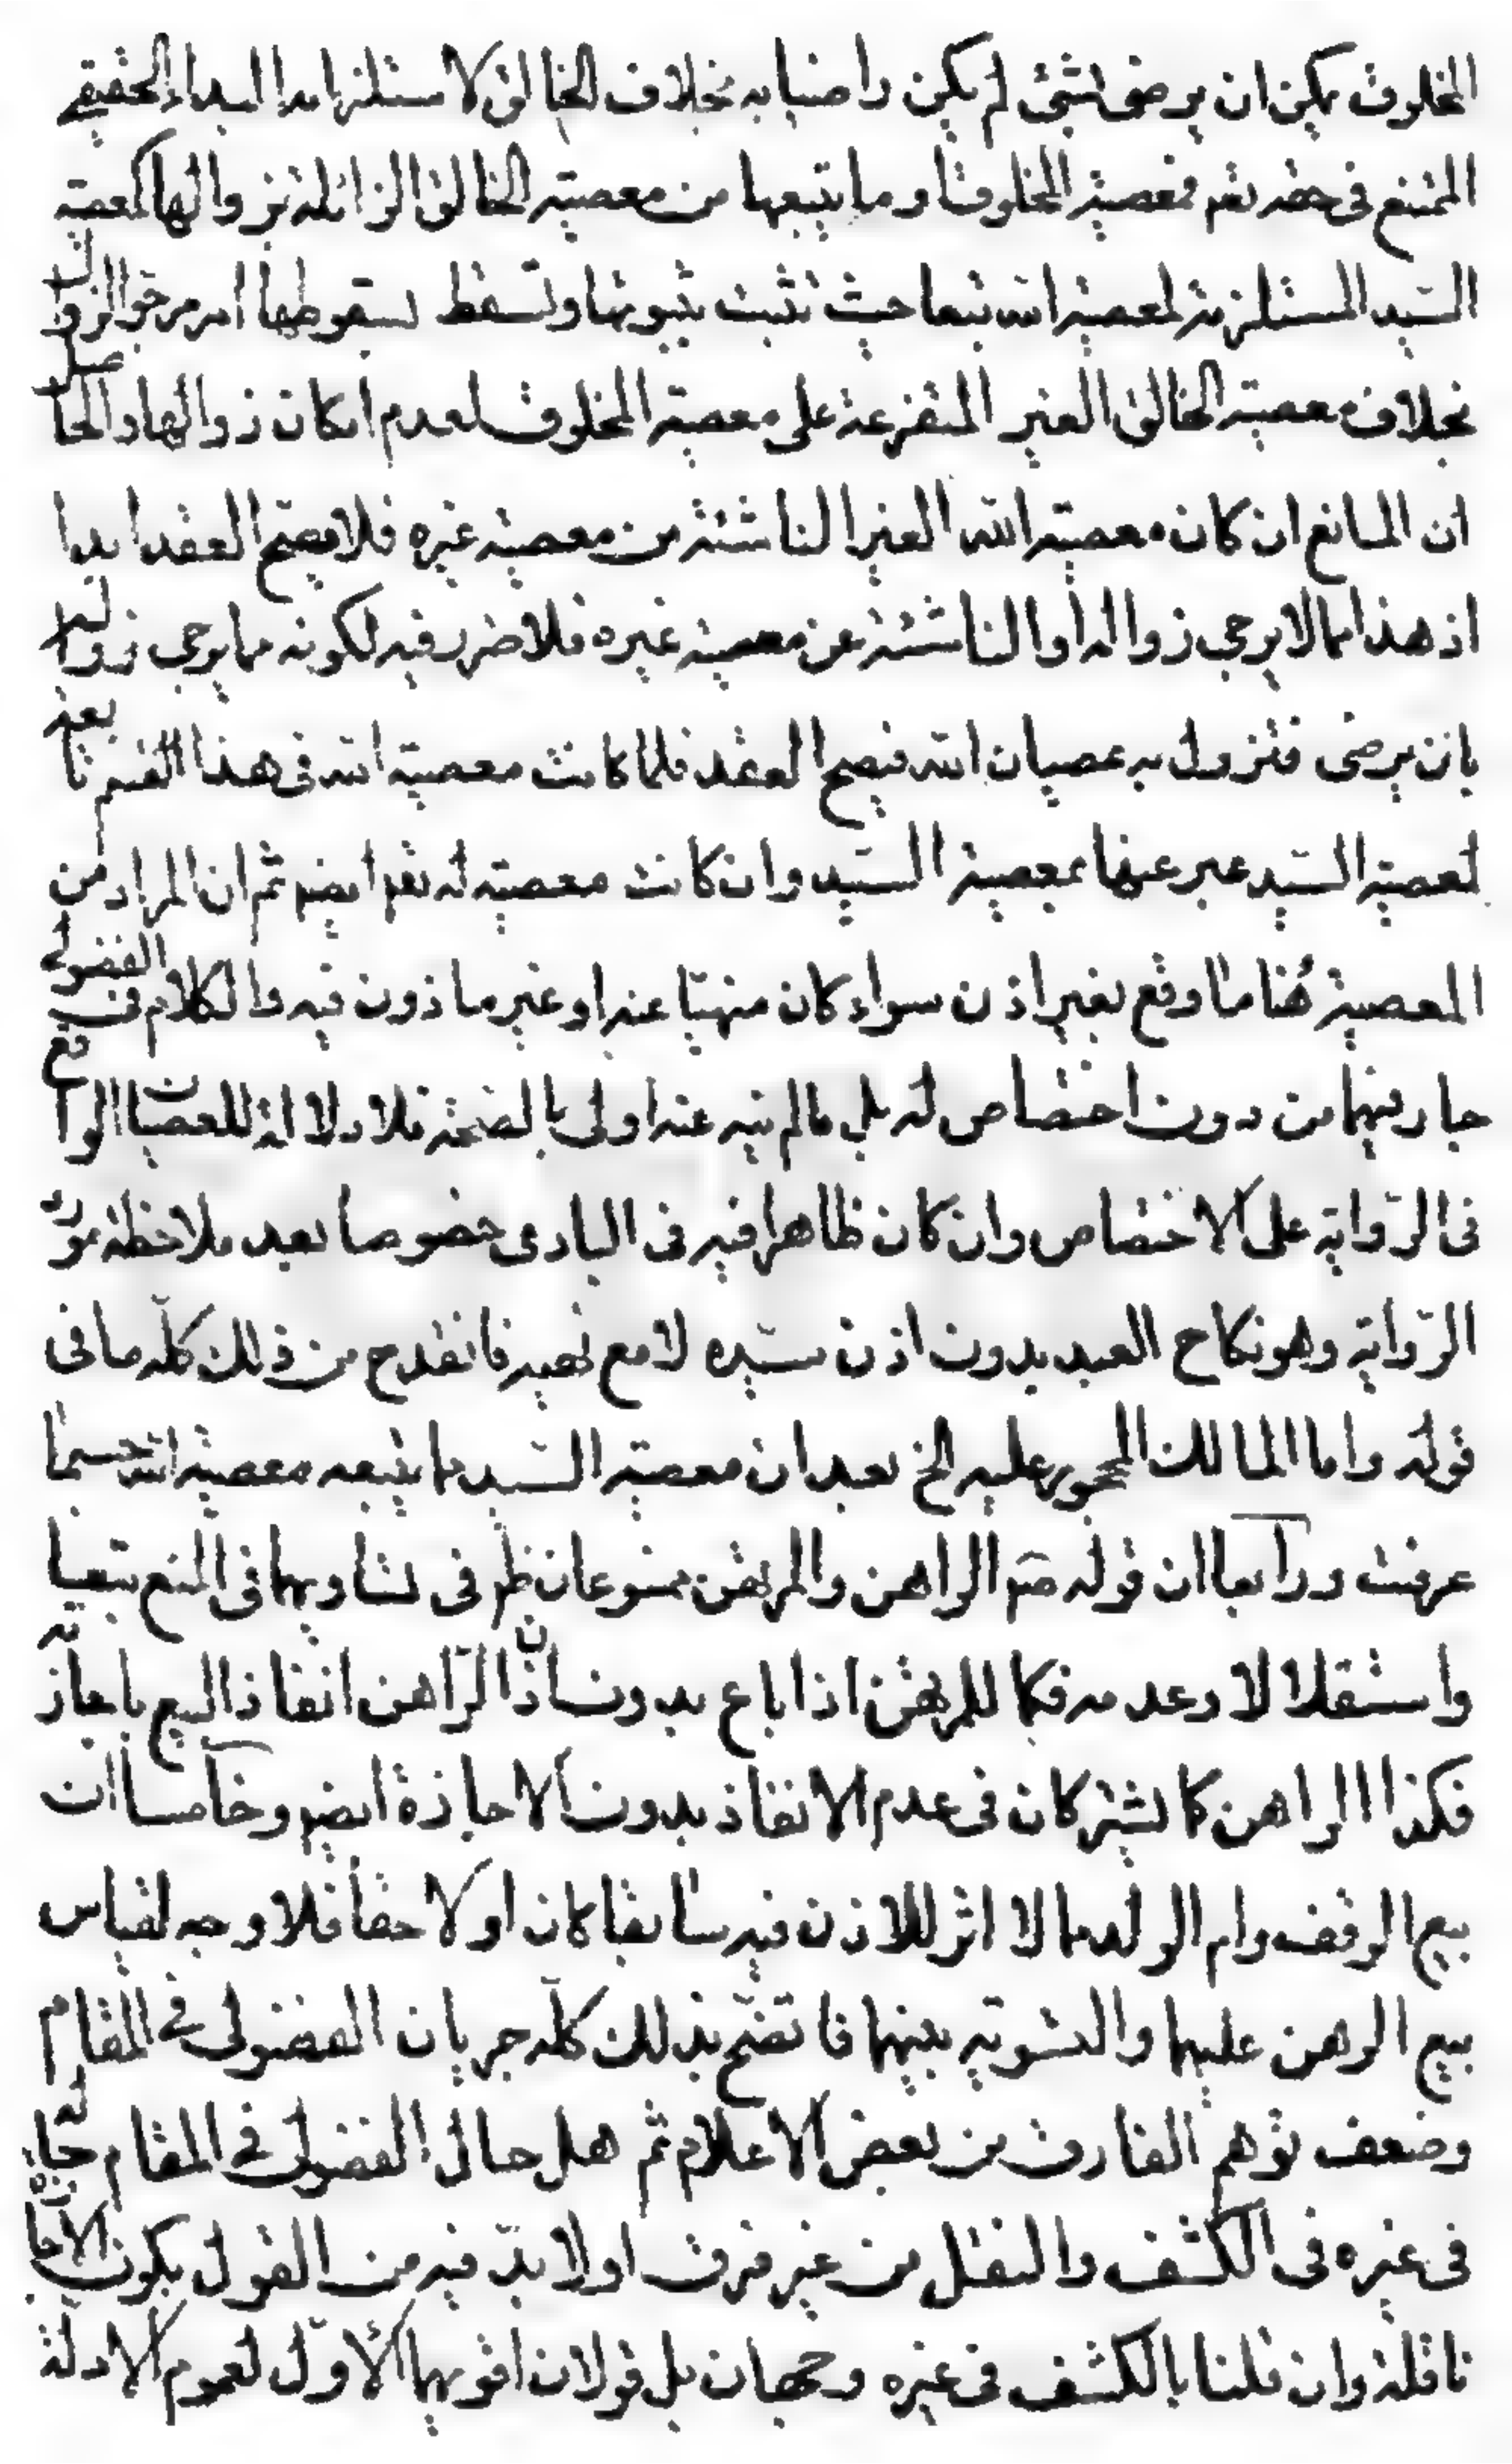 المخلوق يمكن ان يرضى بشئ لم يكن راضيا به بخلاف الخالق لاستلزامه البداء الحقيقي
الممتنع في حقه تعم فمعصية المخلوق وما يتبعها من معصية الخالق الزائلة بزوالها كمعصية
السيد المستلزمة لمعصية الله تبعا حيث تثبت بثبوتها وتسقط بسقوطها امر مرجو الزوال
بخلاف معصية الخالق الغير المتفرعة على معصية المخلوق لعدم امكان زوالها والحاصل
ان المانع ان كان معصية الله الغير الناشئة من معصية غيره فلا يصح العقد ابدا
اذ هذا مما لا يرجى زواله او الناشئة عن معصية غيره فلا ضرر فيه لكونه مما يرجى زواله
بان يرضى فتزول به عصيان الله فيصح العقد فلما كانت معصية الله في هذا القسم تابعة
لمعصية السيد عبر عنها بمعصية السيد وان كانت معصية له تعم ايضم ثم ان المراد من
المعصية هنا ما وقع بغير اذن سواء كان منهيا عنه او غير ماذون فيه والكلام في الفضولي
جار فيهما من دون اختصاص له بل مالم ينه عنه اولى بالصحة فلا دلالة للعصيان الواقع
في الرواية على الاختصاص وان كان ظاهرا فيه في البادى خصوصا بعد ملاحظة مورد
الرواية وهو نكاح العبد بدون اذن سيده لا مع نهيه فانقدح من ذلك كله ما في
قوله واما المالك المحجور عليه الخ بعد ان معصية السيد ما يتبعه معصية الله حسبما
عرفت ورابعا ان قوله صم الراهن والمرتهن ممنوعان ظم في تساويهما في المنع تبعيا
واستقلالا وعدمه فكما للمرتهن اذا باع بدون اذن الراهن انفاذ البيع باجازته
فكذا الراهن كما يشتركان في عدم الانفاذ بدون الاجازة ايضم وخامسا ان
بيع الوقف وام الولد مما لا اثر للاذن فيه سابقا كان او لاحقا فلا وجه لقياس
بيع الرهن عليهما والتسوية بينهما فاتضح بذلك كله جريان الفضولي في المقام
وضعف توهم الفارق من بعض الاعلام ثم هل حال الفضولي في المقام حاله
في غيره في الكشف والنقل من غير فرق اولا بد فيه من القول بكون الاجازة
ناقلة وان قلنا بالكشف في غيره وجهان بل قولان اقويهما الاول لعموم الادلة